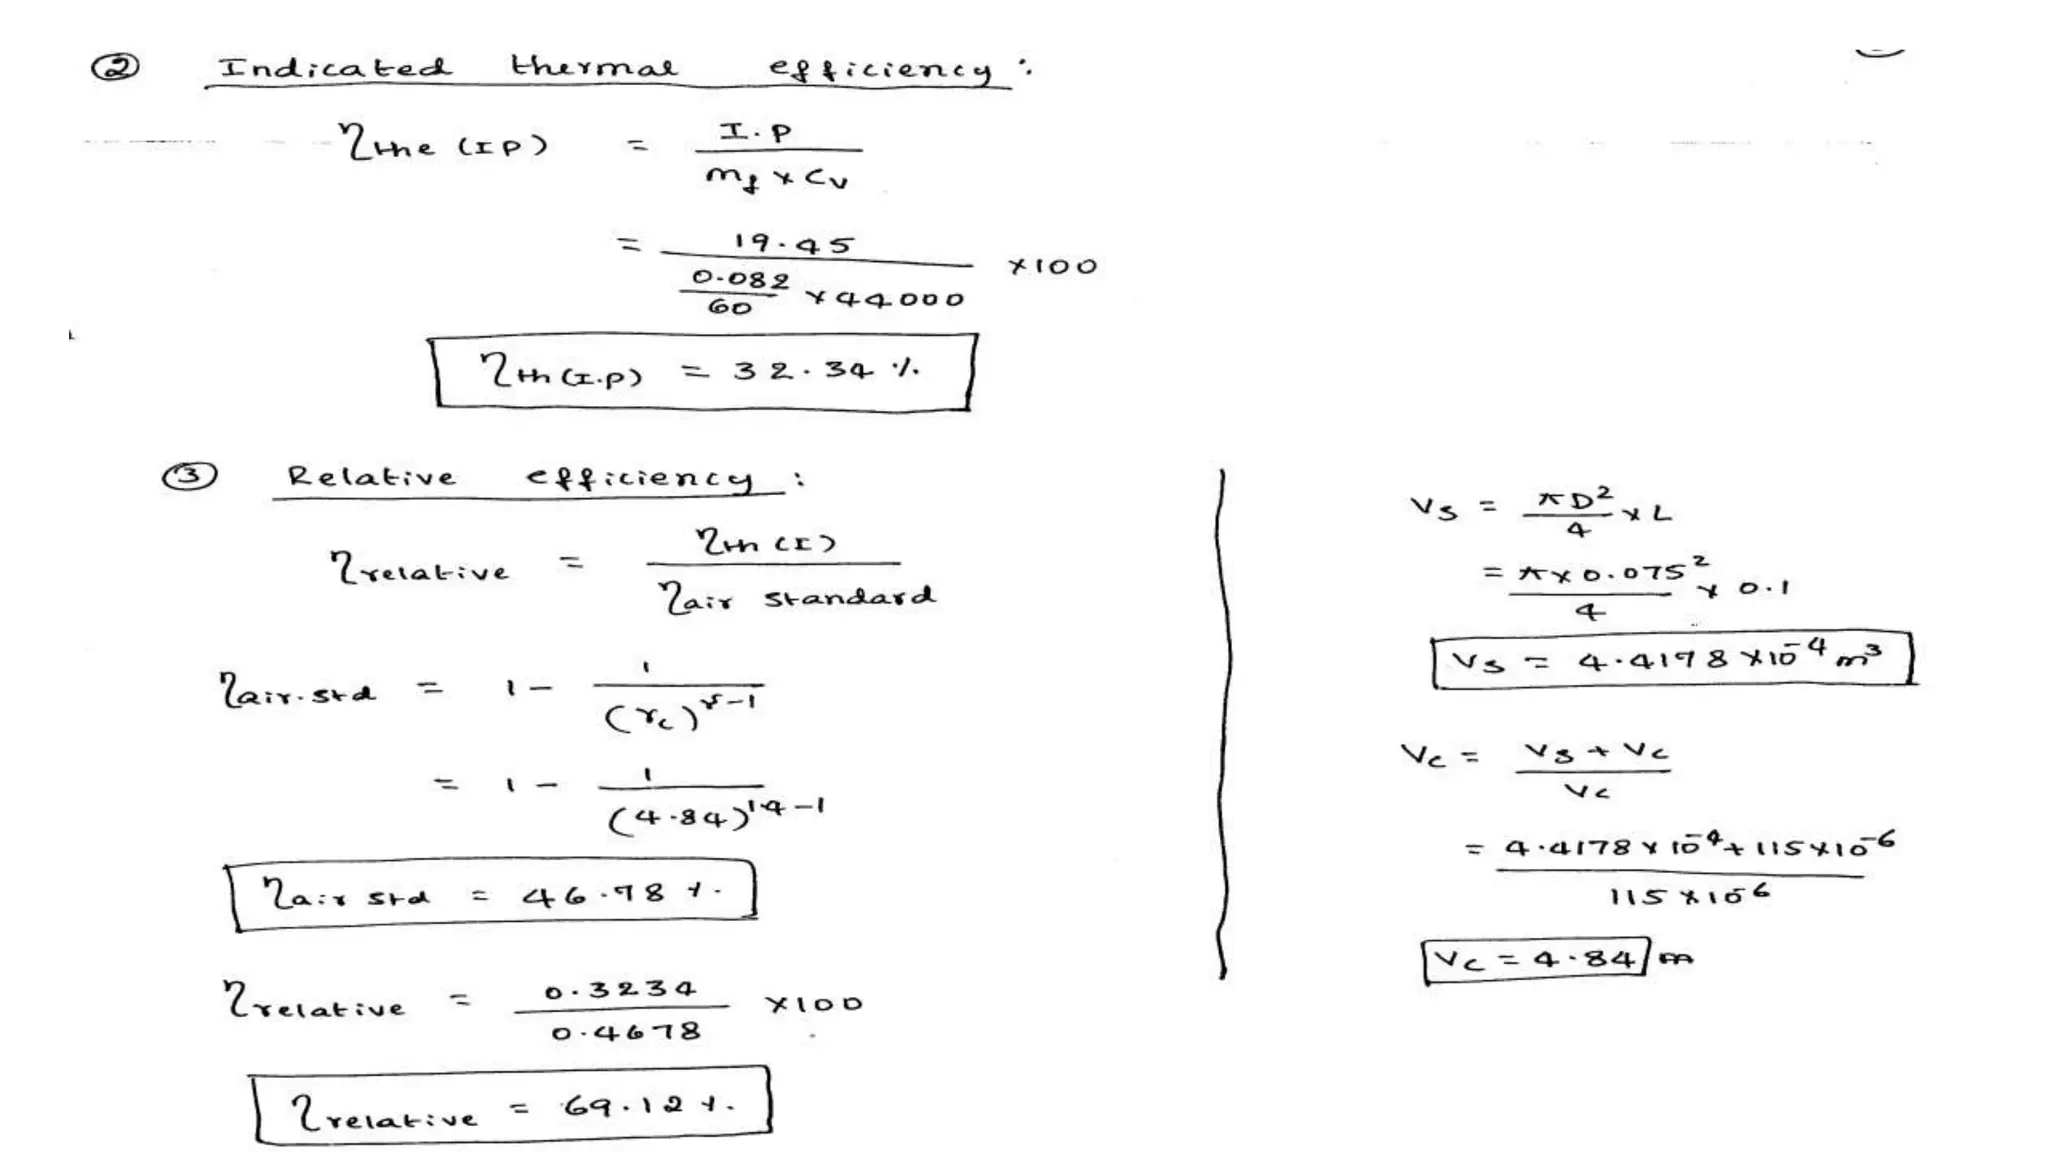 ② Indicated thermal efficiency :
ηthe (IP) = I.P / mf × Cv
= 19.45 / (0.082/60 × 44000) × 100
ηth(I.P) = 32.34 %
③ Relative efficiency :
ηrelative = ηth (I) / ηair standard
ηair.std = 1 - 1 / (rc)^γ-1
= 1 - 1 / (4.84)^1.4-1
ηair std = 46.78 %.
ηrelative = 0.3234 / 0.4678 × 100
ηrelative = 69.12 %.
Vs = πD² / 4 × L
= π × 0.075² / 4 × 0.1
Vs = 4.4178 × 10^-4 m³
Vc = Vs + Vc / Vc
= 4.4178 × 10^-4 + 115 × 10^-6 / 115 × 10^-6
Vc = 4.84 m